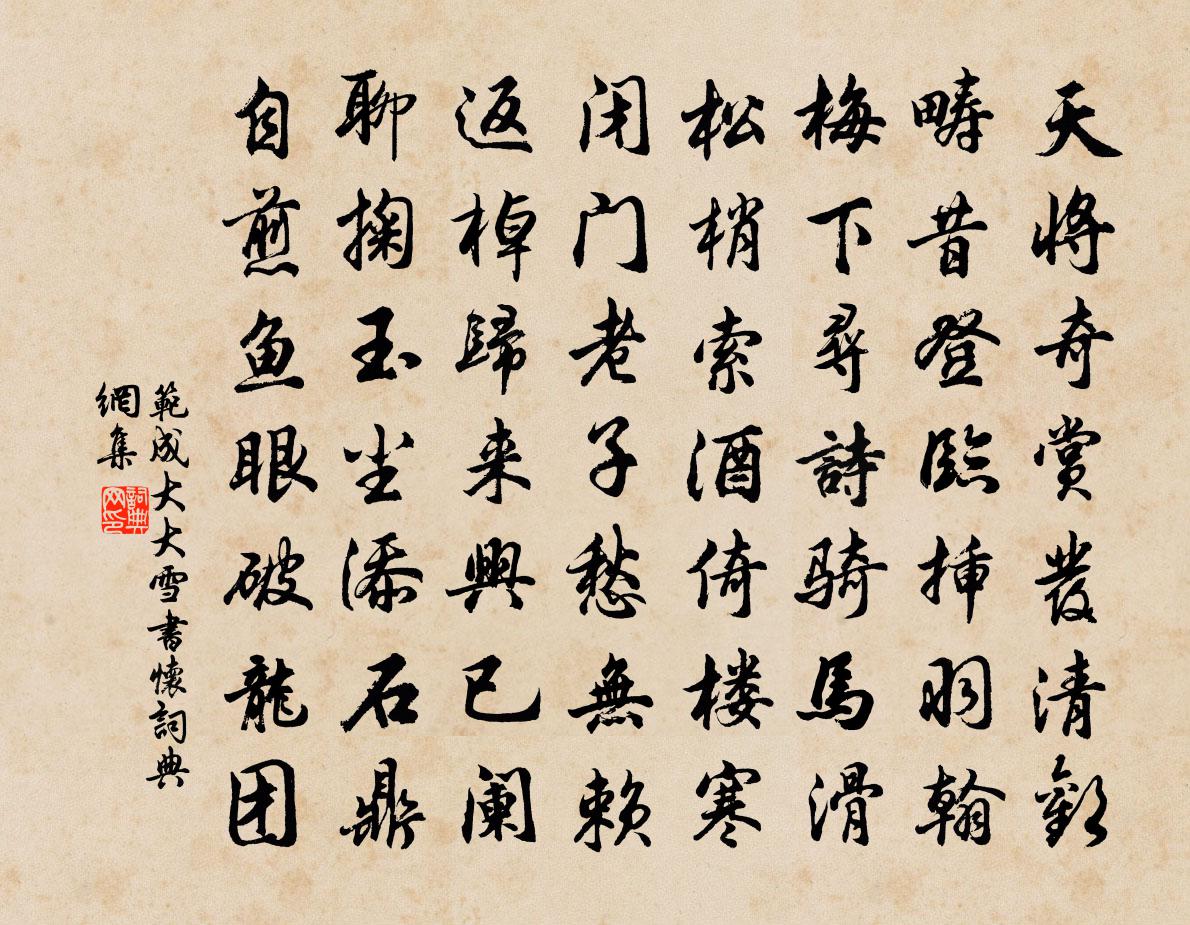 天将奇賞發清歡
疇昔登臨插羽翰
梅下尋詩骑馬滑
松梢索酒倚楼寒
闭门老子愁無赖
返棹歸来興已阑
聊掬玉尘添石鼎
自煎鱼眼破龍团
範成大大雪書懷詞典
網集
詞典
网印